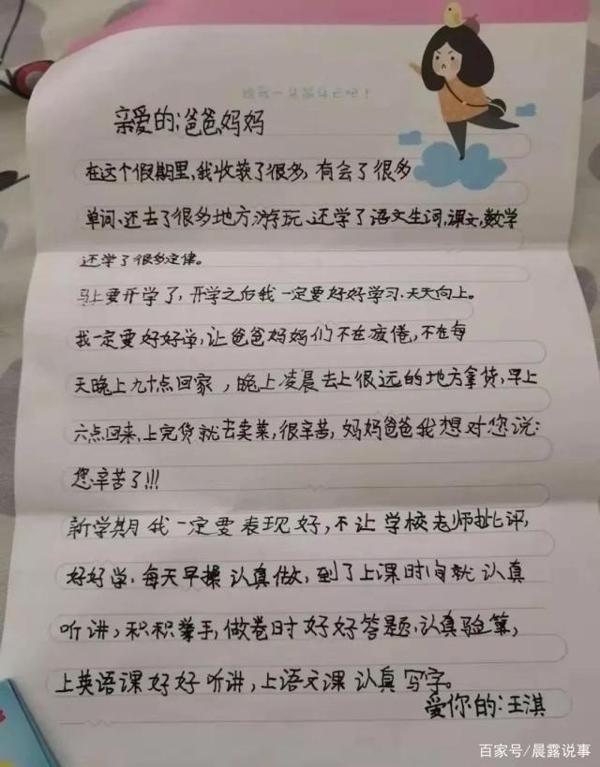 亲爱的:爸爸妈妈
在这个假期里,我收获了很多,有会了很多
单词.还去了很多地方游玩.还学了语文生词,课文,数学
还学了很多定律。
马上要开学了,开学之后我一定要好好学习.天天向上。
我一定要好好学,让爸爸妈妈们不在疲倦,不在每
天晚上九十点回家,晚上凌晨去上很远的地方拿货,早上
六点回来,上完货就去卖菜,很辛苦,妈妈爸爸我想对您说:
您辛苦了!!!
新学期我一定要表现好,不让学校老师批评,
好好学.每天早操认真做,到了上课时间就认真
听讲,积积举手,做卷时好好答题,认真验算,
上英语课好好听讲,上语文课认真写字。
爱你的:王淇
百家号/晨露说事